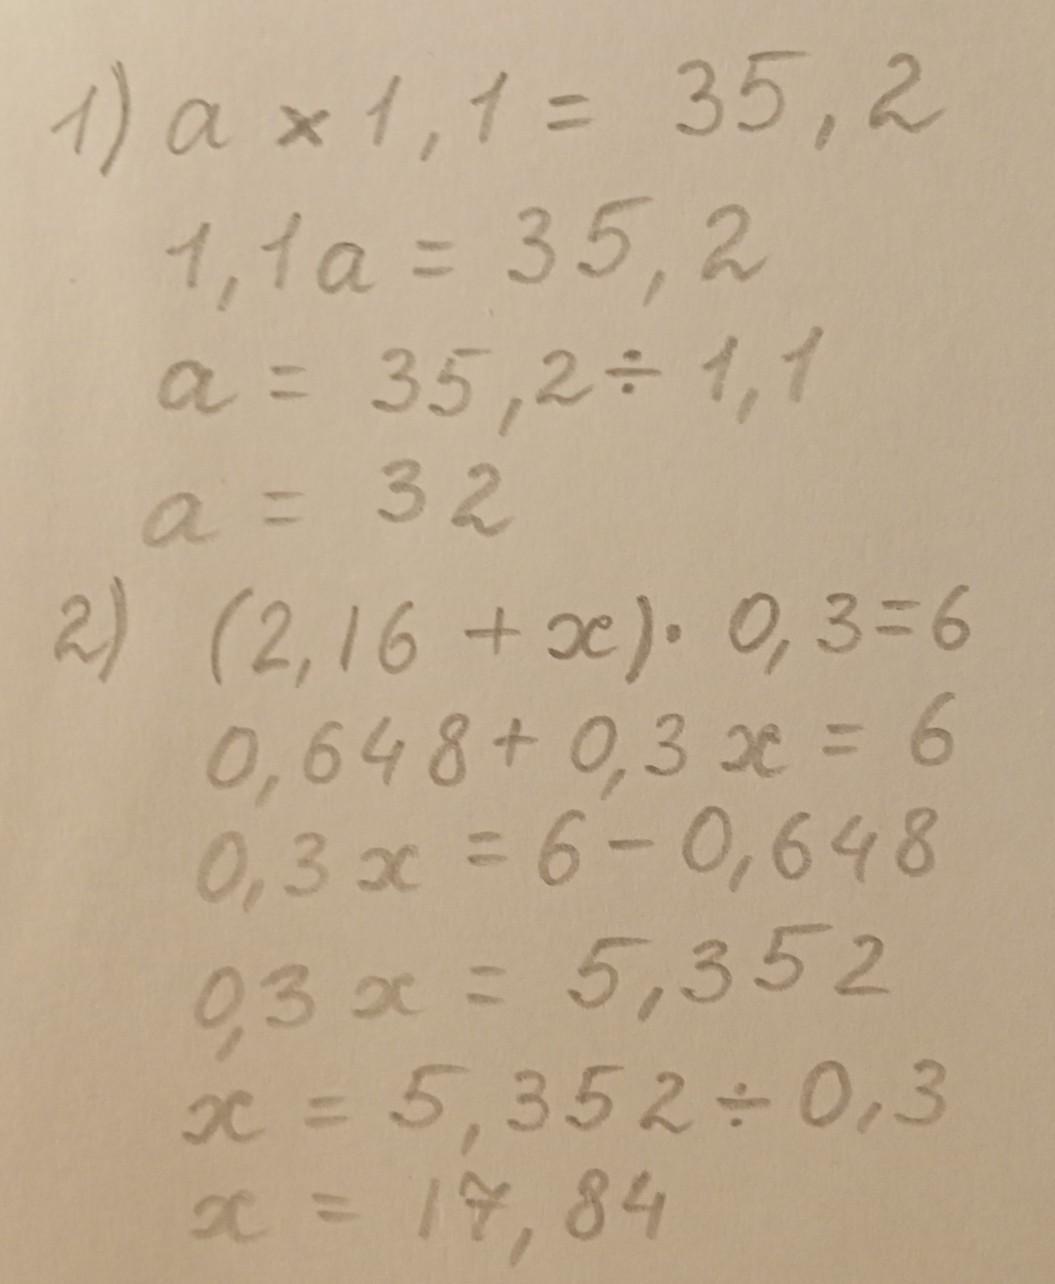 1) a × 1,1 = 35,2
1,1a = 35,2
a = 35,2 ÷ 1,1
a = 32
2) (2,16 + x) · 0,3 = 6
0,648 + 0,3x = 6
0,3x = 6 - 0,648
0,3x = 5,352
x = 5,352 ÷ 0,3
x = 17,84